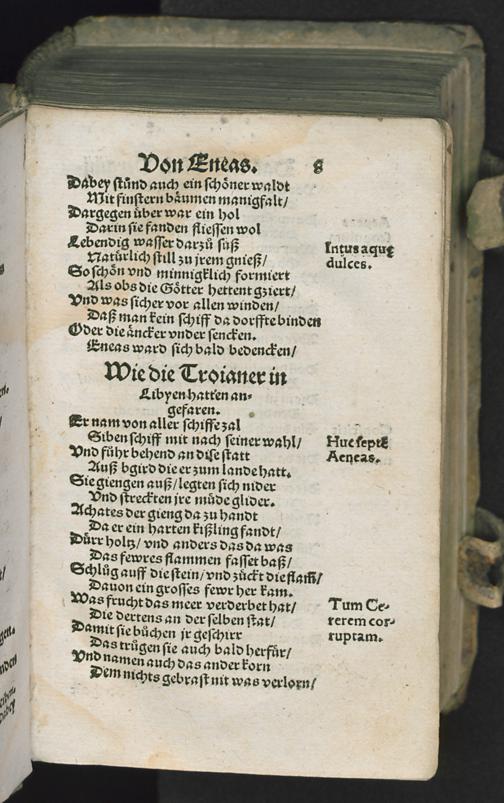 Von Eneas. 8
Dabey stůnd auch ein schöner waldt
Mit finstern bäumen manigfalt/
Dargegen über war ein hol
Darin sie fanden fliessen wol
Lebendig wasser darzů sůß
Natürlich still zu jrem gnieß/
So schön vnd minnigklich formiert
Als obs die Götter hettent gziert/
Vnd was sicher vor allen winden/
Daß man kein schiff da dorffte binden
Oder die äncker vnder sencken.
Eneas ward sich bald bedencken/
Intus aquę
dulces.
Wie die Troianer in
Libyen hatten an-
gefaren.
Er nam von aller schiffe zal
Siben schiff mit nach seiner wahl/
Vnd führ behend an dise statt
Auß bgird die er zum lande hatt.
Sie giengen auß/legten sich nider
Vnd streckten jre müde glider.
Achates der gieng da zu handt
Da er ein harten kißling fandt/
Dürr holtz/ vnd anders das da was
Das fewres flammen fasset baß/
Schlůg auff die stein/vnd zückt die flam̃/
Dauon ein grosses fewr her kam.
Was frucht das meer verderbet hat/
Die dertens an der selben stat/
Damit sie büchen jr geschirr
Das trůgen sie auch bald herfür/
Vnd namen auch das ander korn
Dem nichts gebrast nit was verlorn/
Huc septē
Aeneas.
Tum Ce-
rerem cor-
ruptam.